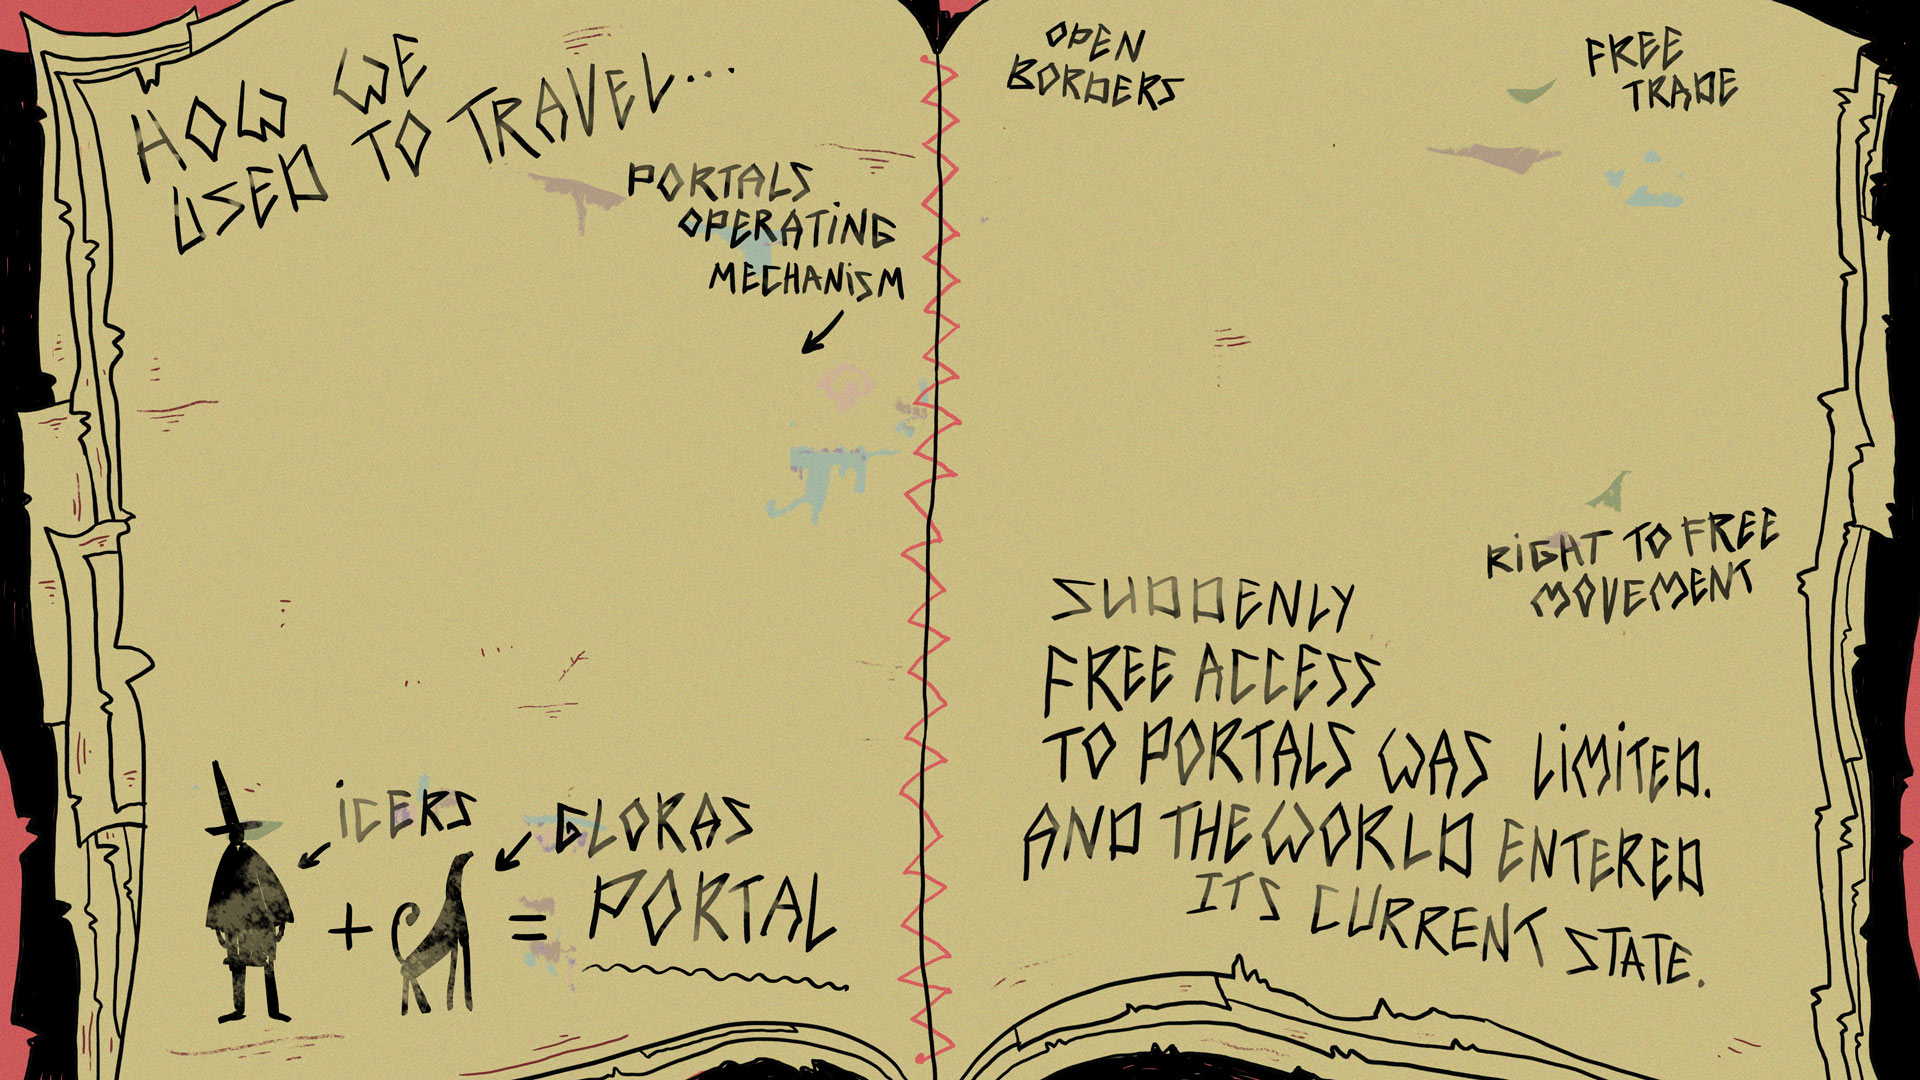 HOW WE
USED TO TRAVEL...
PORTALS
OPERATING
MECHANISM
ICERS
GLORAS
+ = PORTAL
OPEN
BORDERS
FREE
TRADE
RIGHT TO FREE
MOVEMENT
SUDDENLY
FREE ACCESS
TO PORTALS WAS LIMITED.
AND THE WORLD ENTERED
ITS CURRENT STATE.